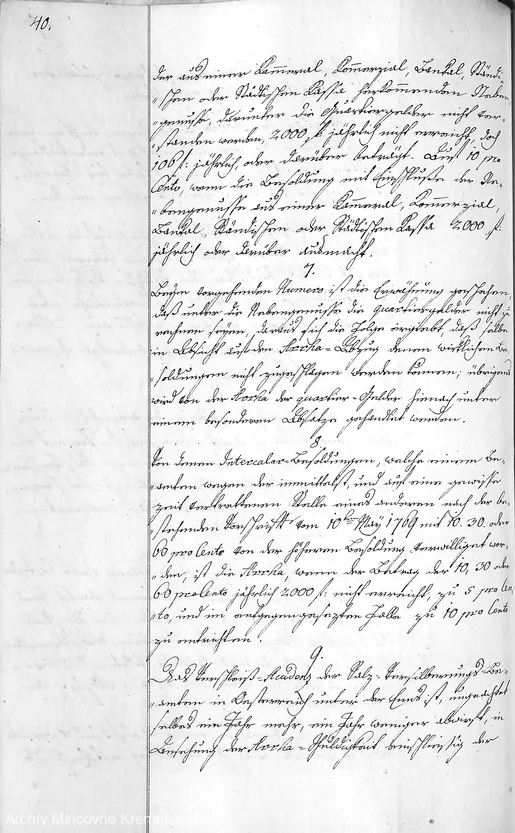 40.
der aus einer Kammeral, Kommerzial, Bankal, Ständi-
„schen oder Städtischen Kassa herkommenden Neben-
„genusse, darunter die Quartiergelder nicht ver-
„standen werden, 2000 f: jährlich nicht erreicht, doch
106 f: jährlich, oder darüber beträgt. 10 pro
Cento, wenn die Besoldung mit Einschluße der Ne-
„bengenusse aus einer Kammeral, Kommerzial,
Bankal, Ständischen oder Städtischen Kassa 2000 f:
jährlich oder darüber ausmacht.
7.
Beym vorgehenden Numero ist die Erwähnung geschehen,
daß unter die Nebengenusse die quartiergelder nicht zu
rechnen seyen, daraus sich die Folge ergiebt, daß selbe
in Absicht auf den Arrha-Abzug denen wirklichen Be-
„soldungen nicht zugeschlagen werden können; übrigens
wird von der Arrha der quartier-Gelder hienach unter
einem besonderen Absatze gehandlet werden.
8.
Von denen Intercalar-Besoldungen, welche einem Be-
„amten wegen der immittelst, und auf eine gewisse
zeit vertrettenen Stelle eines anderen nach der be-
„stehenden Vorschrift vom 10ten May 1769 mit 10. 30. oder
60 pro Cento von der höheren Besoldung verwilliget wer-
„den, ist die Arrha, wenn der Betrag der 10, 30 oder
60 pro Cento jährlich 2000 f: nicht erreicht, zu 5 pro Cen-
„to, und in entgegengesezten Falle zu 10 pro Cento
zu entrichten.
9.
Das Verschleiß- der Salz-Versilberungs-Be-
„amten in Oesterreich unter der Enns ist, ungeachtet
selbes ein Jahr mehr, ein Jahr weniger abwirft, in
Ansehung der Arrha-Schuldigkeit einschliessig der
Archív Mincovne Kremnica